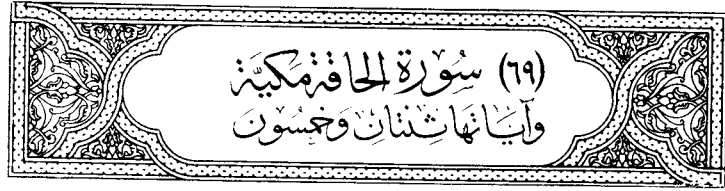 (٦٩) سُورَة الحاقة مَكيَّة
وآيَاتهَا ثنتَان وَخمسُون